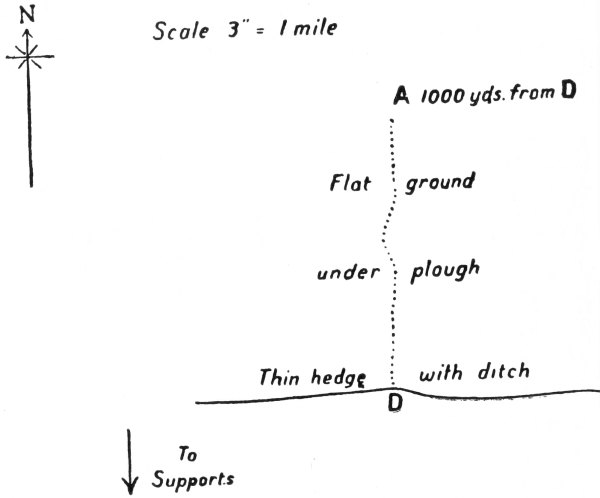 N
Scale 3" = 1 mile
A 1000 yds. from D
Flat ground
under plough
Thin hedge with ditch
D
To
Supports